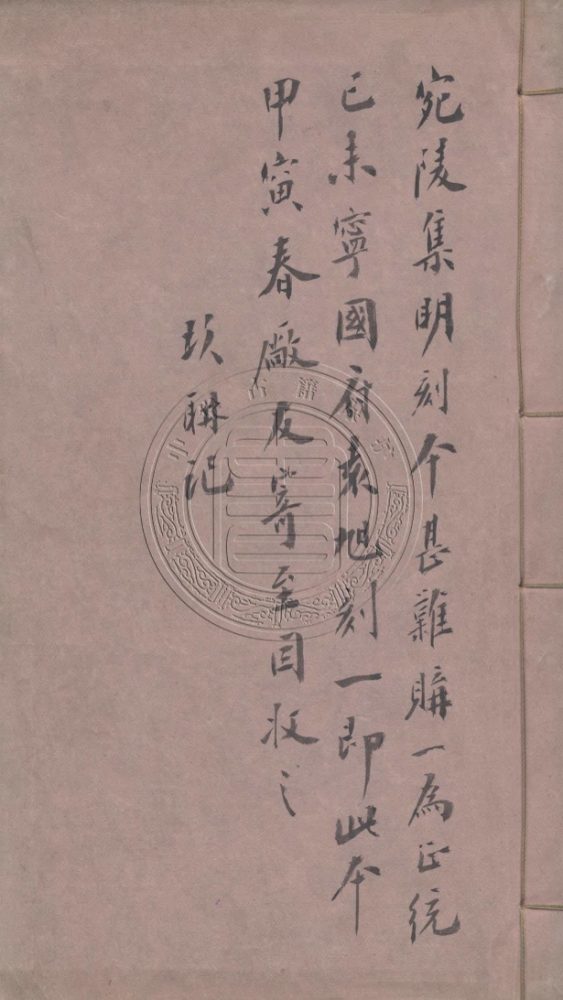 宛陵集明刻今甚難購一為正統
己未寧國府袁旭刻一即此本
甲寅春廠友寄至因收之
玖聃記